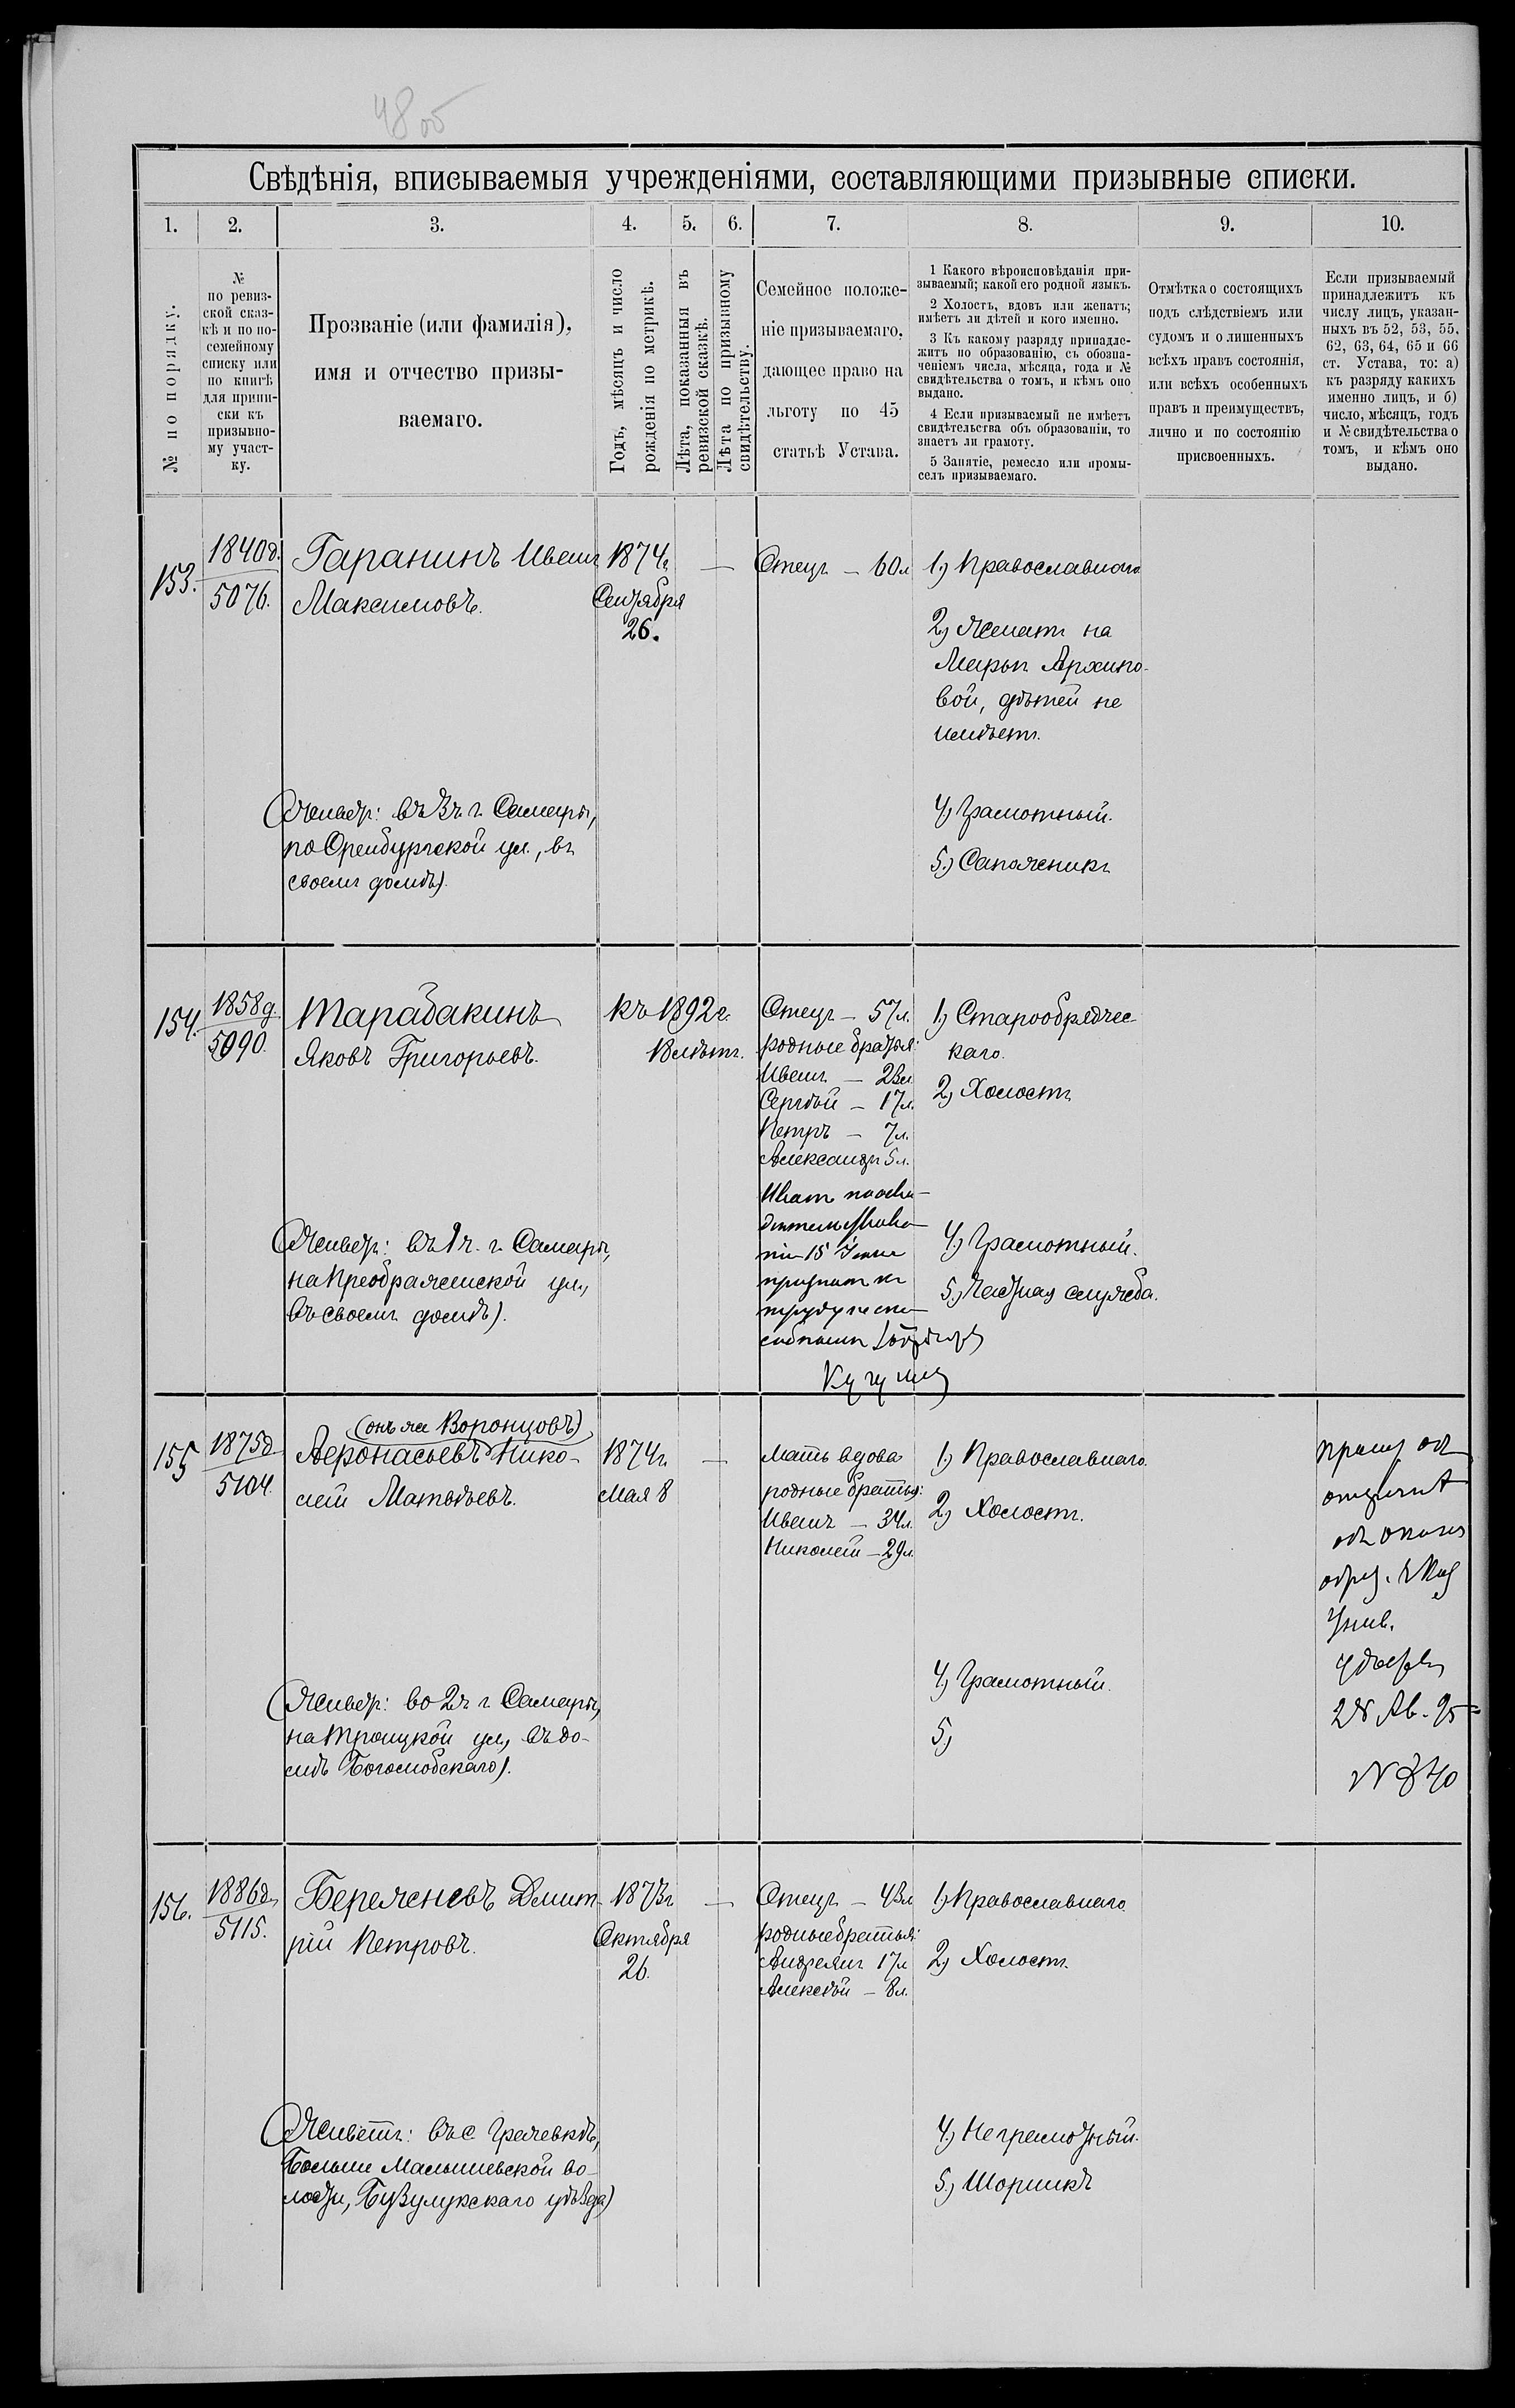 48 об
Свѣдѣнія, вписываемыя учрежденіями, составляющими призывные списки.
1. 2. 3. 4. 5. 6. 7. 8. 9. 10.
№ по порядку.
№
по ревиз-
ской сказ-
кѣ и по по-
семейному
списку или
по книгѣ
для припи-
ски къ
призывно-
му участ-
ку.
Прозваніе (или фамилія),
имя и отчество призы-
ваемаго.
Годъ, мѣсяцъ и число
рожденія по метрикѣ.
Лѣта, показанныя въ
ревизской сказкѣ.
Лѣта по призывному
свидѣтельству.
Семейное положе-
ніе призываемаго,
дающее право на
льготу по 45
статьѣ Устава.
1 Какого вѣроисповѣданія при-
зываемый; какой его родной языкъ.
2 Холостъ, вдовъ или женатъ;
имѣетъ ли дѣтей и кого именно.
3 Къ какому разряду принадле-
житъ по образованію, съ обозна-
ченіемъ числа, мѣсяца, года и №
свидѣтельства о томъ, и кѣмъ оно
выдано.
4 Если призываемый не имѣетъ
свидѣтельства объ образованіи, то
знаетъ ли грамоту.
5 Занятіе, ремесло или промы-
селъ призываемаго.
Отмѣтка о состоящихъ
подъ слѣдствіемъ или
судомъ и о лишенныхъ
всѣхъ правъ состоянія,
или всѣхъ особенныхъ
правъ и преимуществъ,
лично и по состоянію
присвоенныхъ.
Если призываемый
принадлежитъ къ
числу лицъ, указан-
ныхъ въ 52, 53, 55,
62, 63, 64, 65 и 66
ст. Устава, то: а)
къ разряду какихъ
именно лицъ, и б)
число, мѣсяцъ, годъ
и № свидѣтельства о
томъ, и кѣмъ оно
выдано.
153.
1840д.
5076.
Гаранинъ Иванъ
Максимовъ.
1874г.
Сентября
26.
—
Отецъ — 60л
1) Православнаго
2) Женатъ на
Марьѣ Архипо-
вой, дѣтей не
имѣетъ.
4) Грамотный.
5.) Сапожникъ
(Живетъ: въ 3ч. г. Самары,
по Оренбургской ул., въ
своемъ домѣ).
154.
1858д.
5090.
Тарабакинъ
Яковъ Григорьевъ.
къ 1892г.
18 лѣтъ.
Отецъ — 57л.
родные братья:
Иванъ — 23л
Сергѣй — 17л.
Петръ — 7л.
Александръ 5л.
Иванъ
15
признанъ къ
1) Старообрядчес-
каго.
2) Холостъ
4.) Грамотный.
5.) Частная служба.
(Живетъ: въ 1ч. г. Самары,
на Преображенской ул.,
въ своемъ домѣ).
155
1875д
5104.
(онъ же Воронцовъ)
Аѳонасьевъ Нико-
лай Матвѣевъ.
1874г.
Мая 8
—
Мать вдова
родные братья:
Иванъ — 34л.
Николай — 29л.
1.) Православнаго.
2) Холостъ.
4.) Грамотный.
5.)
28 Ав. 95
(Живетъ: во 2ч. г. Самары,
на Троицкой ул., въ до-
мѣ Боголюбскаго).
156.
1886д.
5115.
Бережневъ Дмит-
рій Петровъ.
1873г
Октября
26.
—
Отецъ — 43л
родные братья:
Андреянъ 17л
Алексѣй — 8л.
1) Православнаго
2) Холостъ.
4.) Неграмотный.
5.) Шорникъ
(Живетъ: въ с. Грачевкѣ,
Больше Малышевской во-
лости, Бузулукскаго уѣзда)